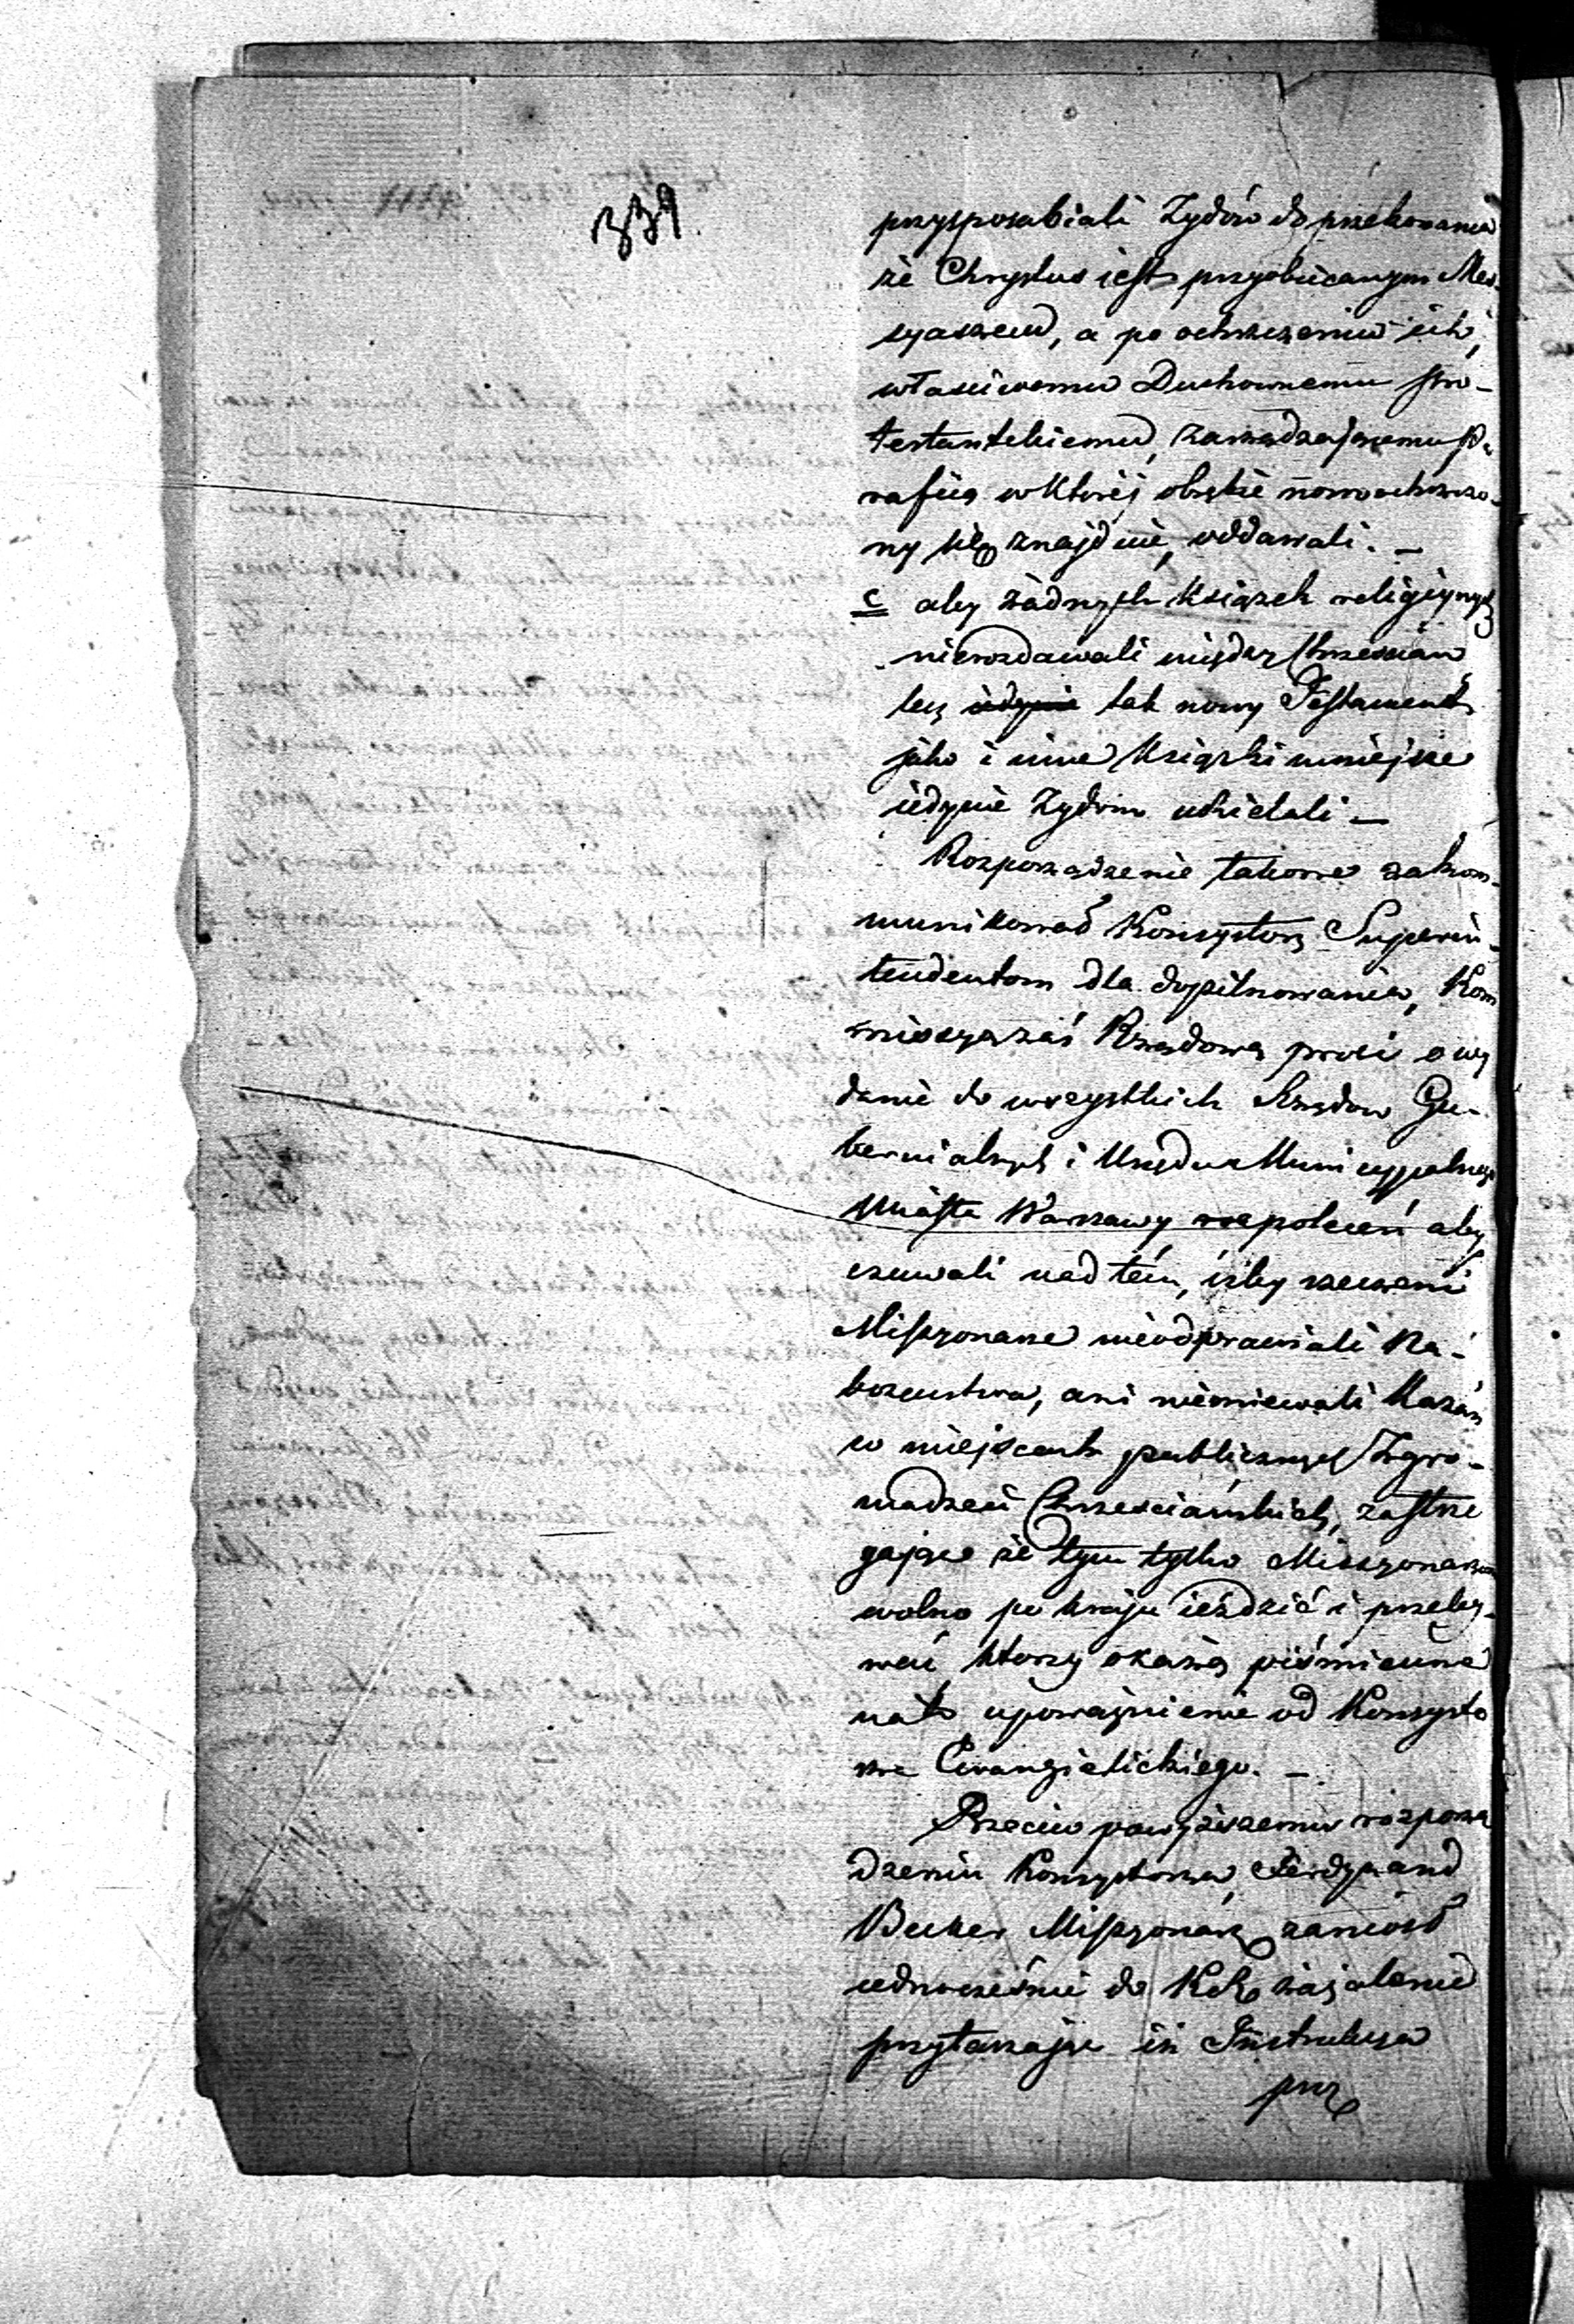 339.
przysposabiali Zydów do przekonania
że Chrystus iest przyobiecanym Mes-
syaszem, a po ochrzczeniu ich,
właściwemu Duchownemu pro-
testantskiemu, zawiadzaiącemu Pa
rafiią w której obrębie nowoochrzczo-
ny się znajdzie, oddawali. —
c aby żadnych książek religijnych
nierozdawali między Chrześcian
lecz iedynie tak nowy Testament
jako i inne książki mniejsze
iedynie Zydom udzielali —
Rozporządzenie takowe zakom-
munikował Konsystorz Superin-
tendentom dla dopilnowania, Kom
missyą zaś Rządową prosi o wy
danie do wszystkich Rządow Gu-
bernialnych i Urzędu Municypalnego
Miasta Warszawy poleceń aby
czuwali nad tém, iżby rzeczeni
Missyonarze nieodprawiali Na-
bożeństwa, ani niemiewali Kazań
w miejscach publicznych Zgro-
madzeń Chrześciańskich, zastrze
gając że tym tylko Missyonarzom
wolno po kraju ieździć i przeby-
wać, ktorzy okażą piśmienne
na to upoważnienie od Konsysto
rza Ewangielickiego. —
Przeciw powyższemu rozporzą
dzeniu Konsystorza, Ferdynand
Becker Missyonarz zaniósł
iednocześnie do KR zażalenie
przytaczając iż Instrukcya
prz